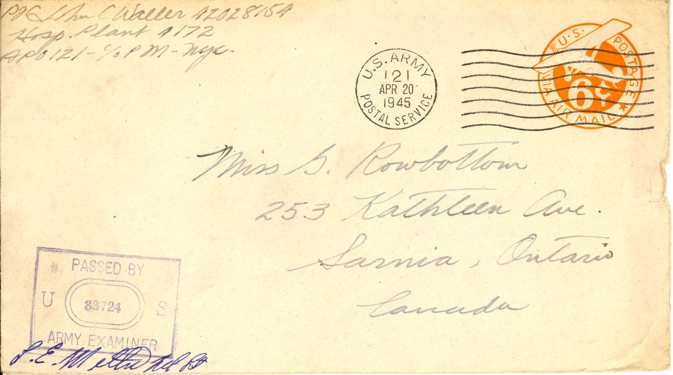 Pfc John C Waller 42028154
Hosp. Plant 4172
APO 121-c/o PM-NYC.
U.S. ARMY
121
APR 20
1945
POSTAL SERVICE
U.S. POSTAGE
6¢
VIA AIR MAIL
Miss G. Rowbottom
253 Kathleen Ave.
Sarnia, Ontario
Canada
PASSED BY
U 33724 S
ARMY EXAMINER